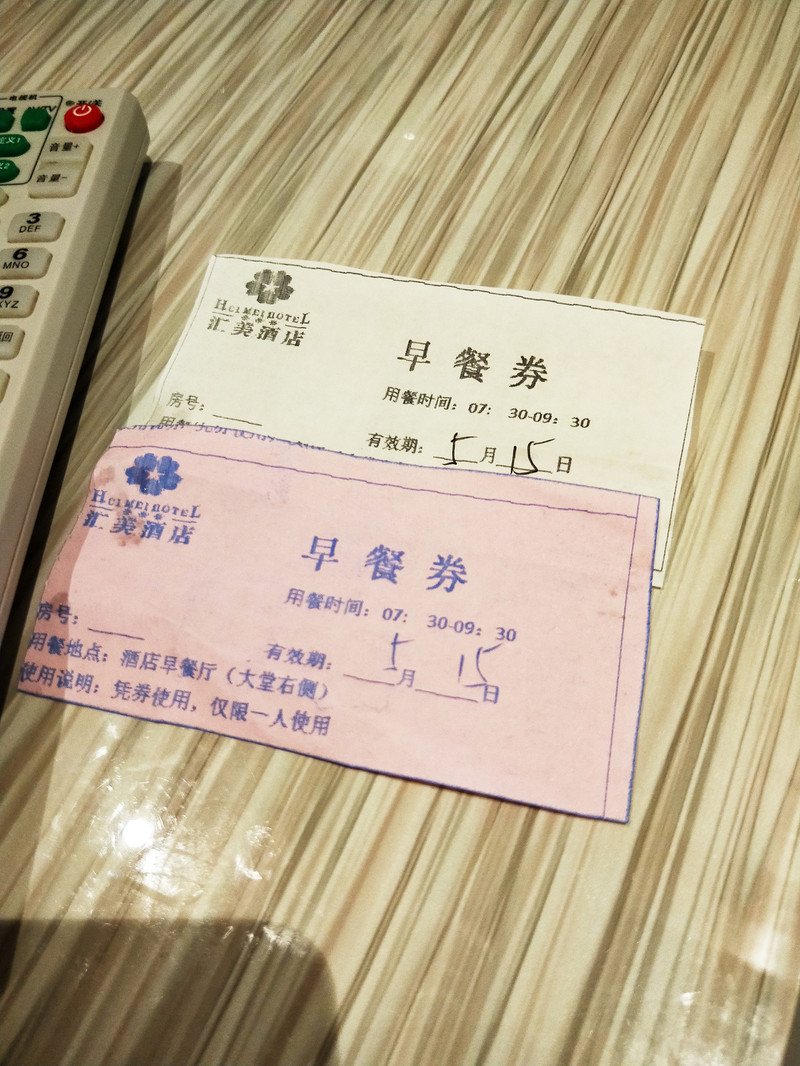 电视机
开/关
AV/TV
音量+
音量-
3
DEF
6
MNO
9
XYZ
HUIMEIHOTEL
汇美酒店
早餐券
用餐时间：07：30-09：30
房号：
有效期： 5 月 15 日
HUIMEIHOTEL
汇美酒店
早餐券
用餐时间：07：30-09：30
房号：
有效期： 5 月 15 日
用餐地点：酒店早餐厅（大堂右侧）
使用说明：凭券使用，仅限一人使用